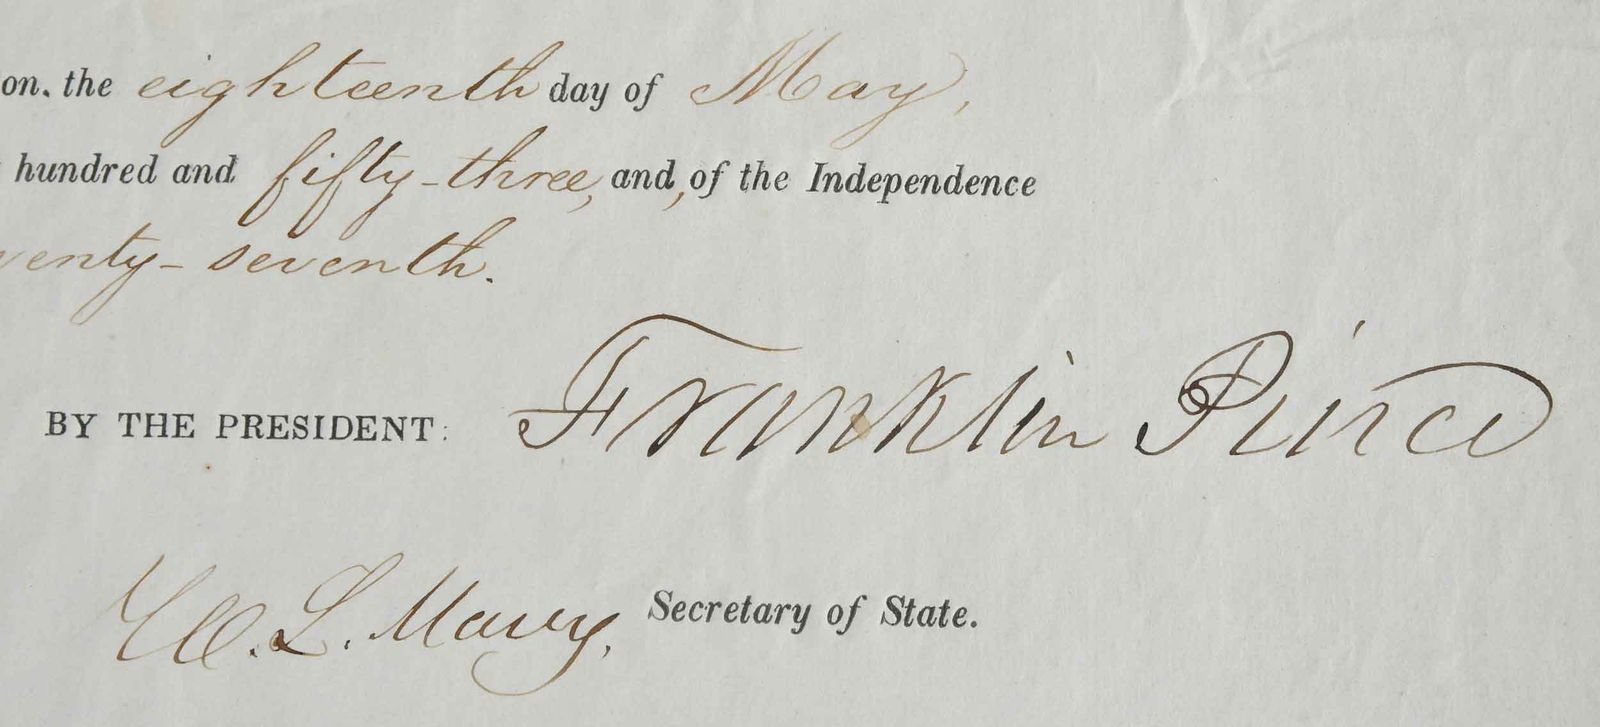 on, the eighteenth day of May,
hundred and fifty-three, and, of the Independence
venty-seventh.
Franklin Pierce
BY THE PRESIDENT:
W. L. Marcy, Secretary of State.